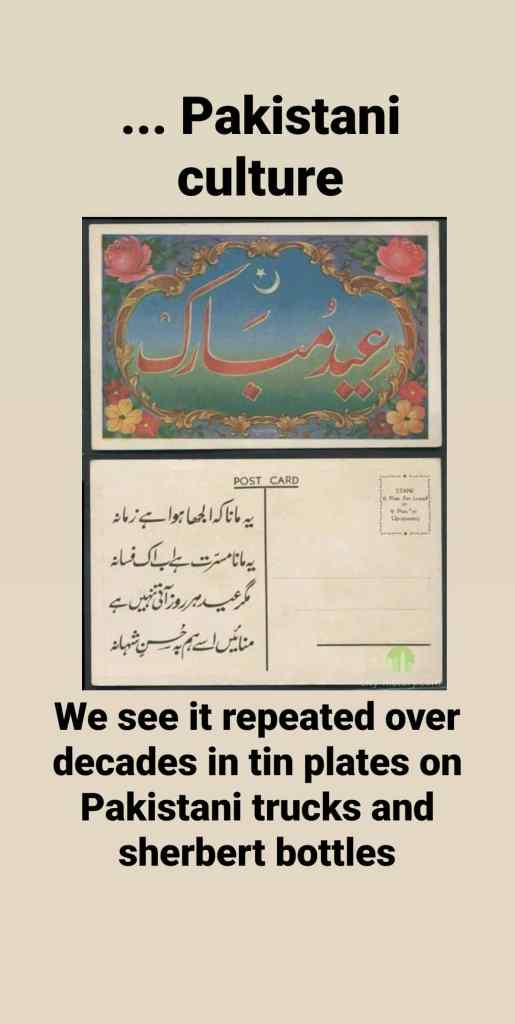 ... Pakistani
culture
عید مُبارک
POST CARD
یہ مانا کہ الجھا ہوا ہے زمانہ
یہ مانا مسرت ہے اب اک فسانہ
مگر عید ہر روز آتی نہیں ہے
منائیں اسے ہم بہ حُسنِ شہانہ
STAMP
We see it repeated over
decades in tin plates on
Pakistani trucks and
sherbert bottles